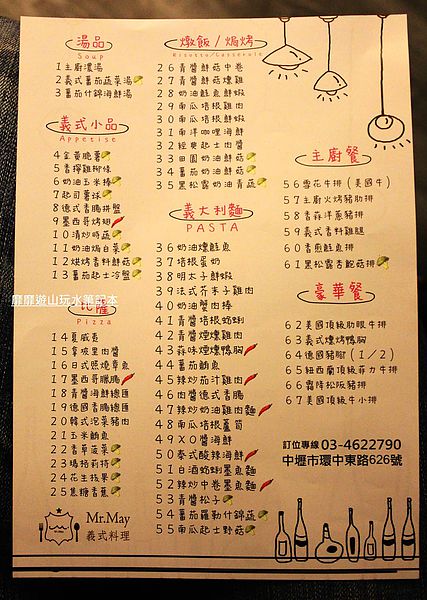 湯品
Soup
1主廚濃湯
2義式蕃茄蔬菜湯
3蕃茄什錦海鮮湯
義式小品
Appetise
4金黃脆薯
5香檸雞柳條
6奶油玉米棒
7起司薯球
8德式香腸拼盤
9墨西哥烤翅
10清炒時蔬
11奶油焗白菜
12烘烤香料鮮菇
13蕃茄起士冷盤
靡靡遊山玩水筆記本
比薩
Pizza
14夏威夷
15拿坡里肉醬
16日式照燒章魚
17墨西哥臘腸
18青醬海鮮總匯
19德國香腸總匯
20韓式泡菜豬肉
21玉米鮪魚
22香草菠菜
23瑪格莉特
24花生棉花
25焦糖香蕉
Mr.May
義式料理
燉飯/焗烤
Risotto/Casserole
26青醬鮮菇中卷
27青醬鮮菇燻雞
28奶油鮭魚鮮蝦
29南瓜培根雞肉
30南瓜培根鮮蝦
31南洋咖哩海鮮
32經典起士肉醬
33田園奶油鮮菇
34奶油蕃茄鮮菇
35黑松露奶油青蔬
義大利麵
PASTA
36奶油燻鮭魚
37培根蛋奶
38明太子鮮蝦
39法式芥末子雞肉
40奶油蟹肉棒
41青醬培根蛤蜊
42青醬煙燻雞肉
43蒜味煙燻鴨胸
44蕃茄鮪魚
45辣炒茄汁雞肉
46肉醬德式香腸
47辣炒奶油雞肉麵
48辣奶培根薑筒
49XO醬海鮮
50泰式酸辣海鮮
51白酒蛤蜊墨魚麵
52辣炒中卷墨魚麵
53青醬松子
54蕃茄羅勒什錦蔬
55南瓜起士野菇
主廚餐
56雪花牛排(美國牛)
57主廚火烤豬肋排
58香蒜洋蔥豬排
59義式香料雞腿
60香煎鮭魚排
61黑松露杏鮑菇排
豪華餐
62美國頂級肋眼牛排
63義式燻烤鴨胸
64德國豬腳(1/2)
65紐西蘭頂級菲力牛排
66霜降松阪豬排
67美國頂級牛小排
訂位專線03-4622790
中壢市環中東路626號